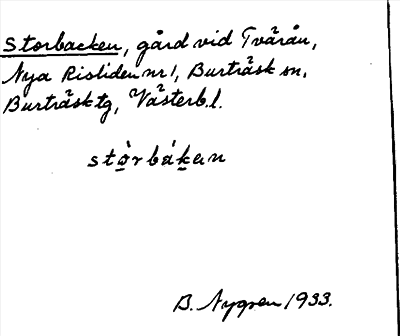 Storbacken, gård vid Tvärån,
Nya Risliden nr 1, Burträsk sn,
Burträsk tg, Västerb.l.
stòrbákan
B. Nygren 1933.